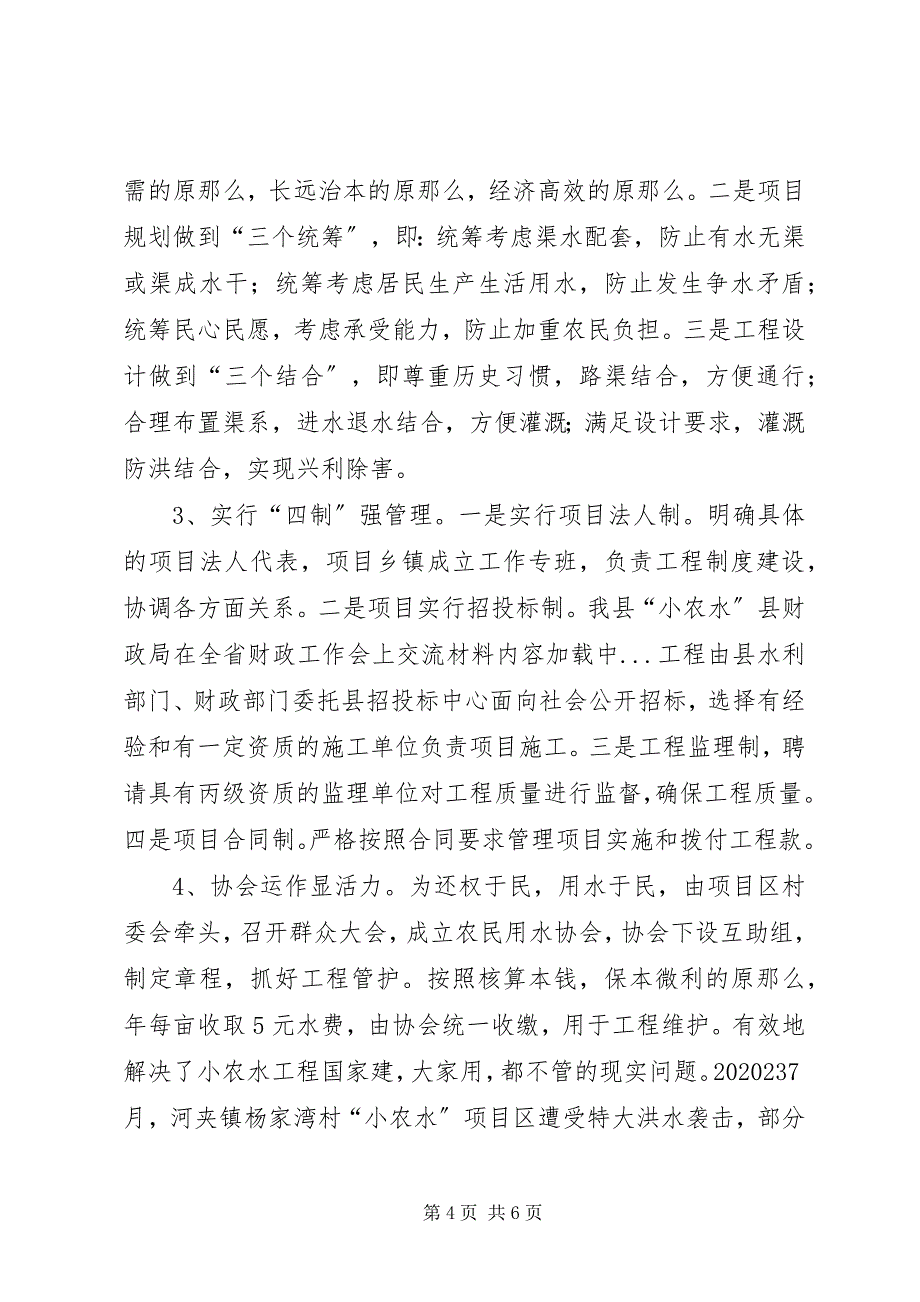 需的原那么，长远治本的原那么，经济高效的原那么。二是项目
规划做到“三个统筹〞，即：统筹考虑渠水配套，防止有水无渠
或渠成水干；统筹考虑居民生产生活用水，防止发生争水矛盾；
统筹民心民愿，考虑承受能力，防止加重农民负担。三是工程设
计做到“三个结合〞，即尊重历史习惯，路渠结合，方便通行；
合理布置渠系，进水退水结合，方便灌溉；满足设计要求，灌溉
防洪结合，实现兴利除害。
3、实行“四制〞强管理。一是实行项目法人制。明确具体
的项目法人代表，项目乡镇成立工作专班，负责工程制度建设，
协调各方面关系。二是项目实行招投标制。我县“小农水〞县财
政局在全省财政工作会上交流材料内容加载中...工程由县水利
部门、财政部门委托县招投标中心面向社会公开招标，选择有经
验和有一定资质的施工单位负责项目施工。三是工程监理制，聘
请具有丙级资质的监理单位对工程质量进行监督，确保工程质量。
四是项目合同制。严格按照合同要求管理项目实施和拨付工程款。
4、协会运作显活力。为还权于民，用水于民，由项目区村
委会牵头，召开群众大会，成立农民用水协会，协会下设互助组，
制定章程，抓好工程管护。按照核算本钱，保本微利的原那么，
年每亩收取 5 元水费，由协会统一收缴，用于工程维护。有效地
解决了小农水工程国家建，大家用，都不管的现实问题。2020237
月，河夹镇杨家湾村“小农水〞项目区遭受特大洪水袭击，部分
第 4 页 共 6 页